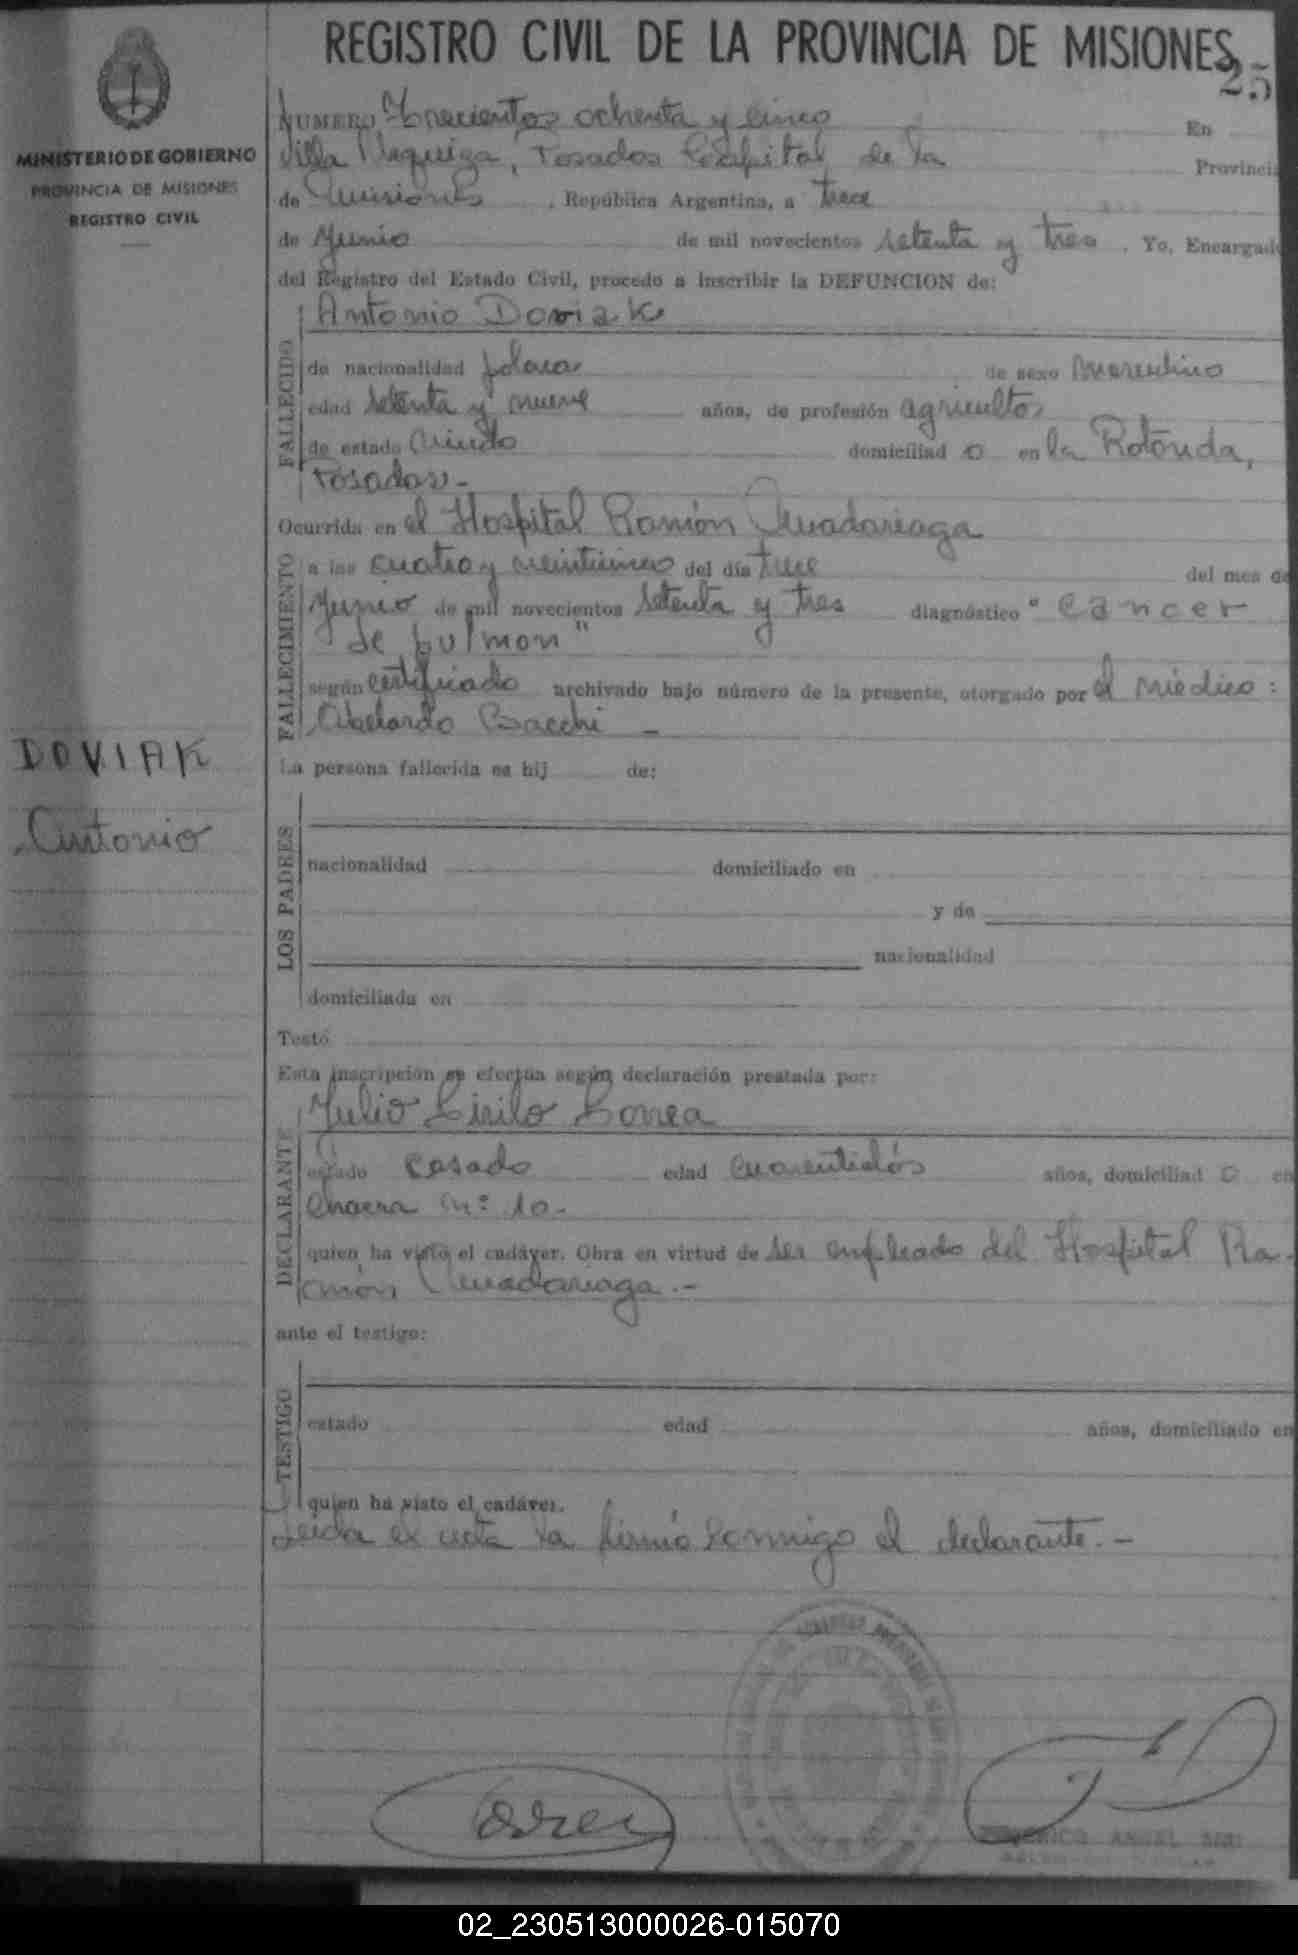 REGISTRO CIVIL DE LA PROVINCIA DE MISIONES
25
MINISTERIO DE GOBIERNO
PROVINCIA DE MISIONES
REGISTRO CIVIL
NUMERO Trecientos ochenta y cinco En
Villa Urquiza, Posadas Capital de la Provincia
de Misiones, República Argentina, a trece
de Junio de mil novecientos setenta y tres. Yo, Encargado
del Registro del Estado Civil, procedo a inscribir la DEFUNCION de:
FALLECIDO
Antonio Doviak
de nacionalidad polaca de sexo masculino
edad setenta y nueve años, de profesión agricultor
de estado viudo domiciliad o en la Rotonda,
Posadas.-
Ocurrida en el Hospital Ramón Madariaga
FALLECIMIENTO
a las cuatro y veinticinco del día trece del mes de
Junio de mil novecientos setenta y tres diagnóstico "Cancer
de pulmon"
según certificado archivado bajo número de la presente, otorgado por el médico:
Abelardo Bacchi -
DOVIAK
Antonio
La persona fallecida es hij de:
LOS PADRES
nacionalidad domiciliado en
y de
nacionalidad
domiciliada en
Testó
Esta inscripción se efectúa según declaración prestada por:
DECLARANTE
Julio Cirilo Correa
estado casado edad cuarentidós años, domiciliad o en
Chacra nº 10.-
quien ha visto el cadáver. Obra en virtud de ser empleado del Hospital Ra-
món Madariaga.-
ante el testigo:
TESTIGO
estado edad años, domiciliado en
quien ha visto el cadáver.
Leida el acta la firmó conmigo el declarante.-
ANGEL
02_230513000026-015070